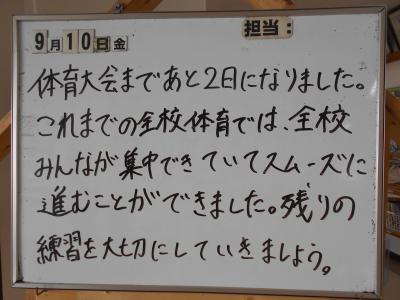 9月10日金 担当:
体育大会まであと2日になりました。
これまでの全校体育では、全校
みんなが集中できていてスムーズに
進むことができました。残りの
練習を大切にしていきましょう。